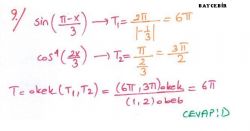 BAYÇEBİR
9/ sin(π-x/3) → T₁ = 2π/|-1/3| = 6π
cos⁴(2x/3) → T₂ = π/(2/3) = 3π/2
T = okek(T₁,T₂) = (6π,3π)okek/(1,2)obeb = 6π
CEVAP:D